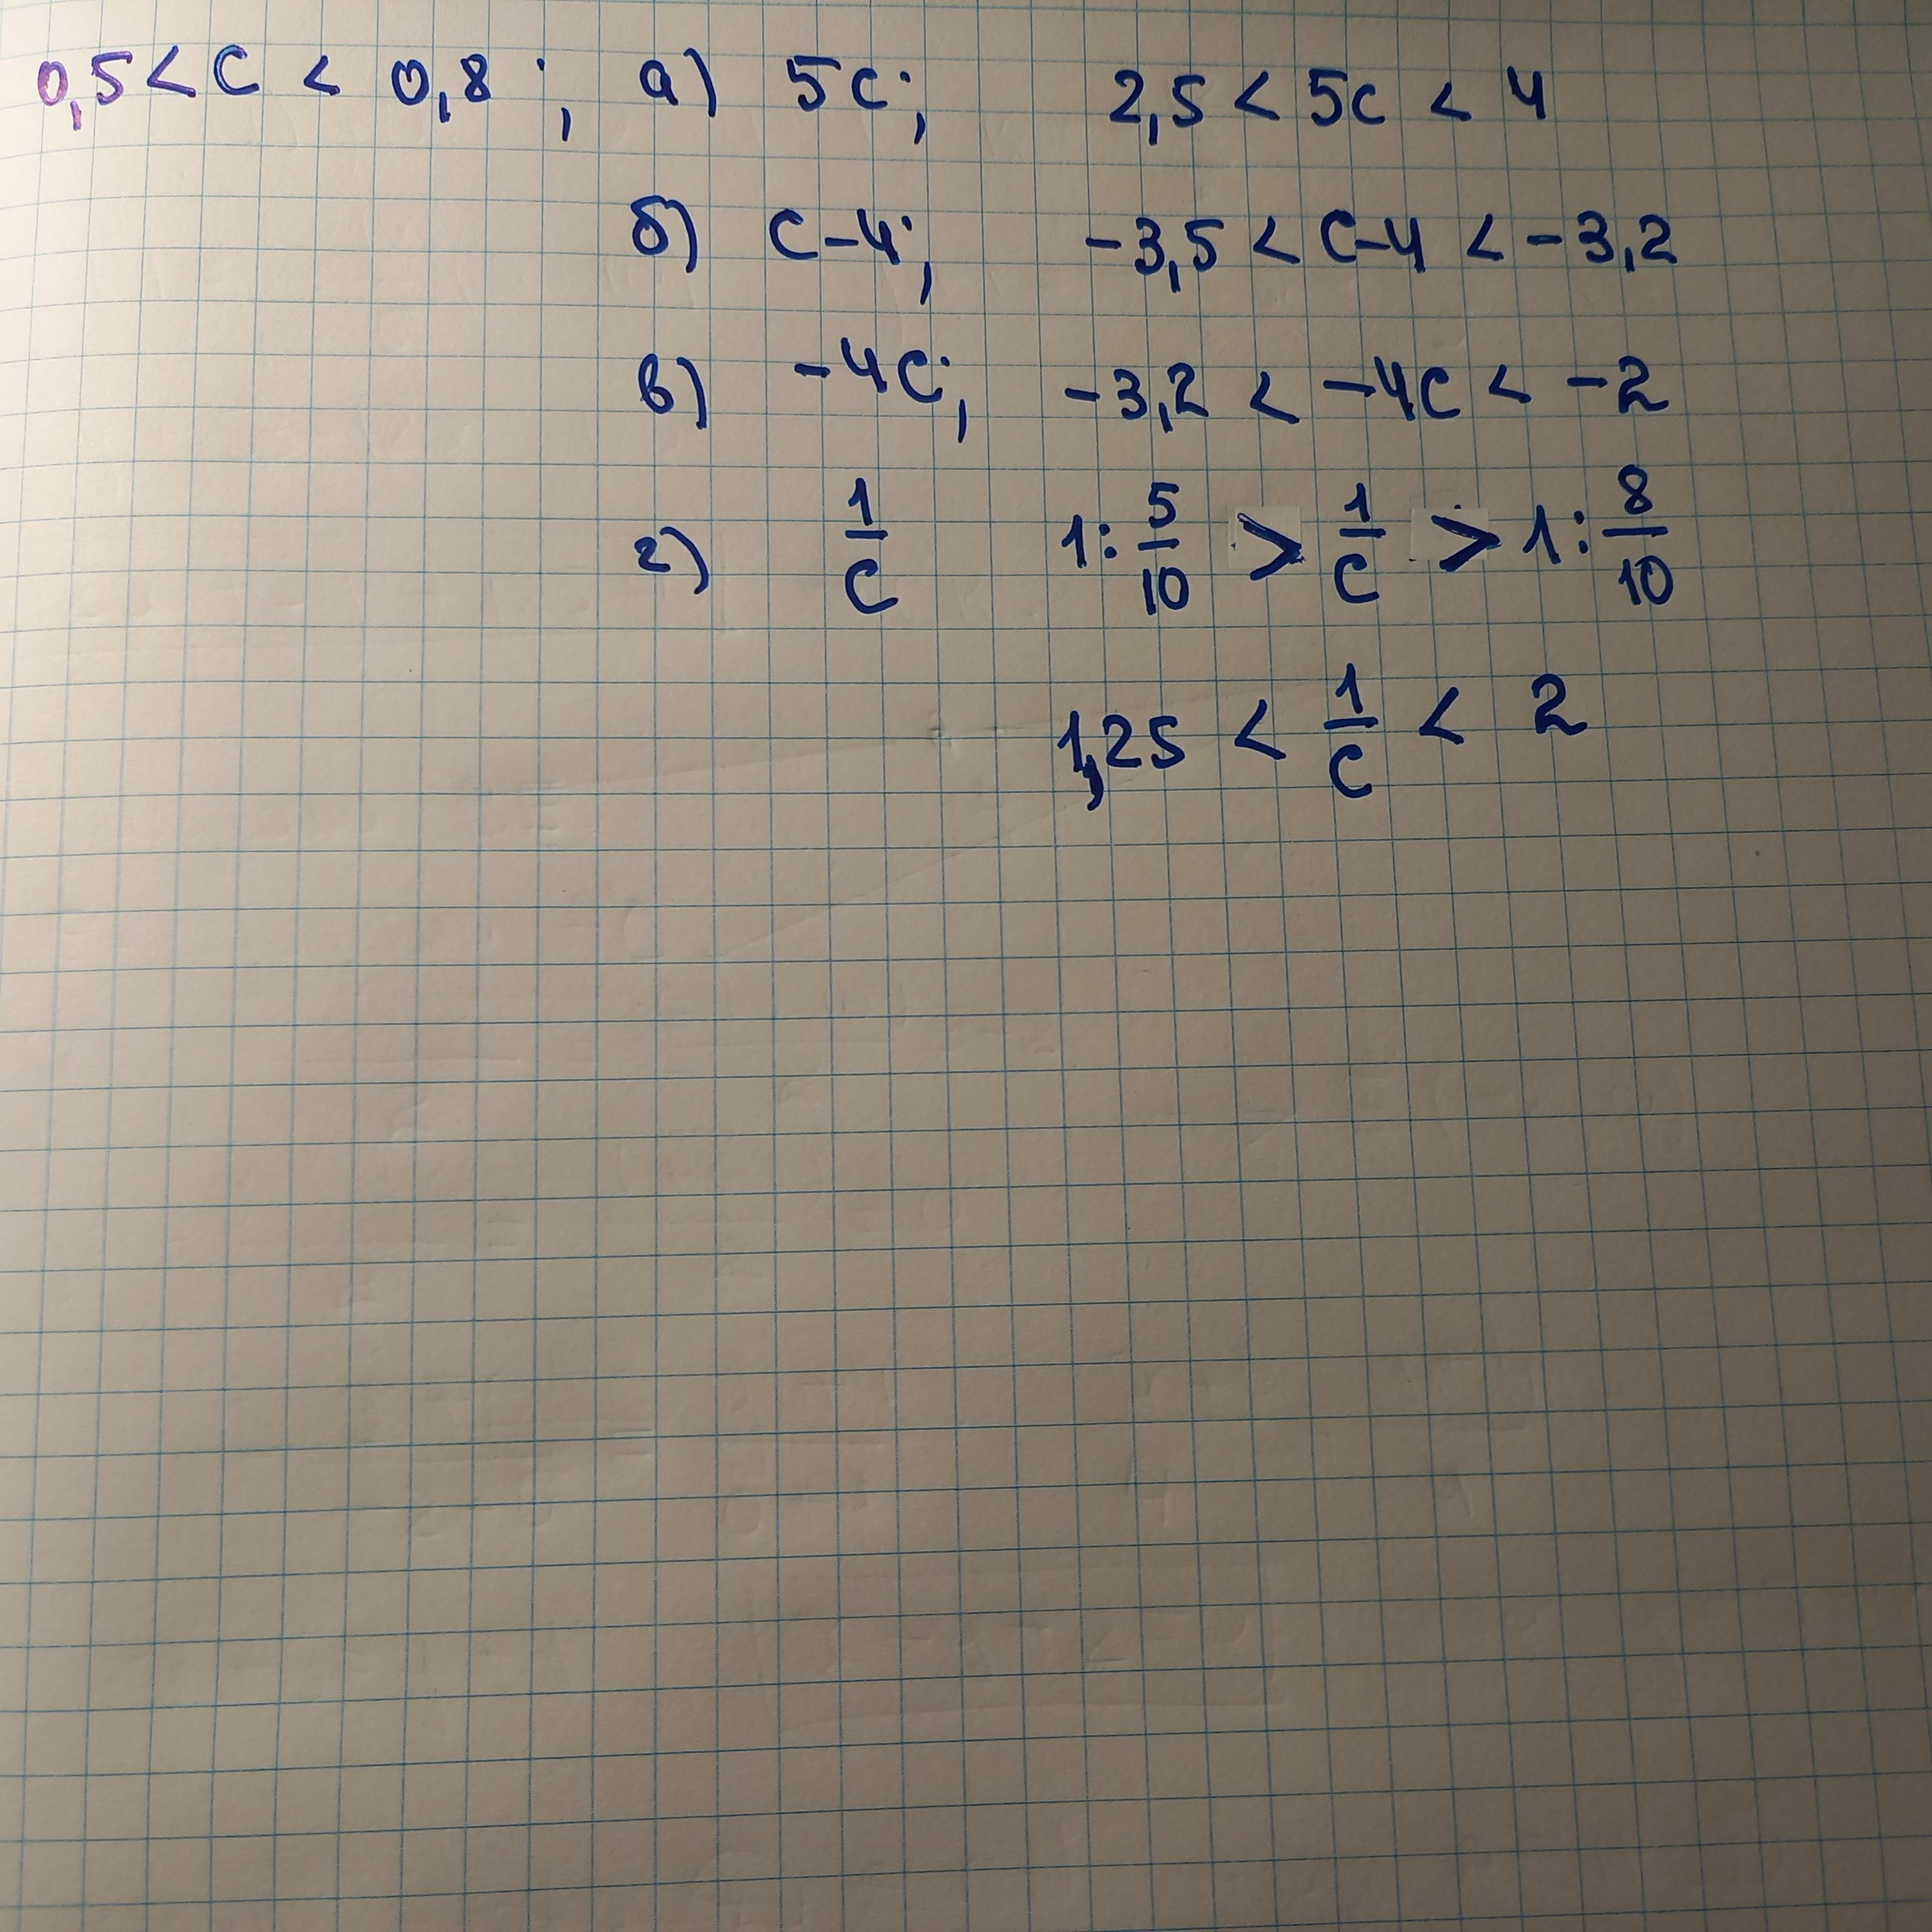 0,5 < c < 0,8 ; а) 5c; 2,5 < 5c < 4
б) c-4; -3,5 < c-4 < -3,2
в) -4c; -3,2 < -4c < -2
г) 1/c 1: 5/10 > 1/c > 1: 8/10
1,25 < 1/c < 2